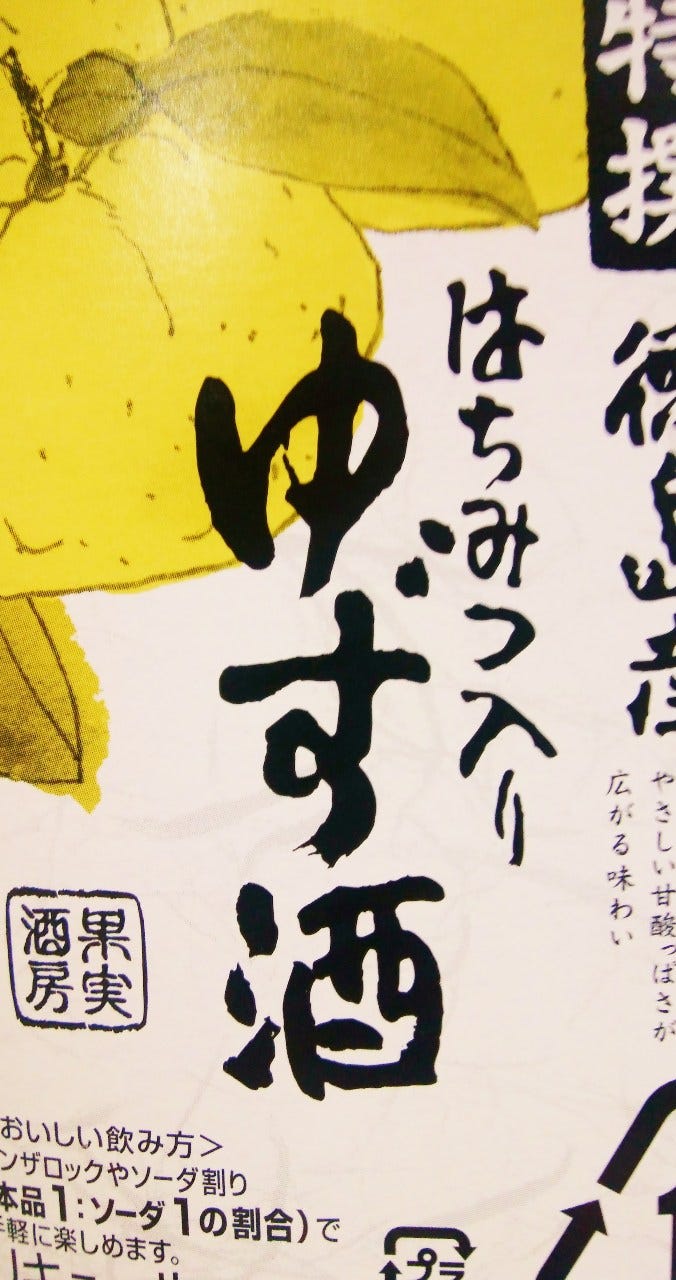 特撰
徳島産
やさしい甘酸っぱさが
広がる味わい
はちみつ入り
ゆず酒
果実
酒房
おいしい飲み方＞
ンザロックやソーダ割り
本品1:ソーダ1の割合)で
手軽に楽しめます。
プラ